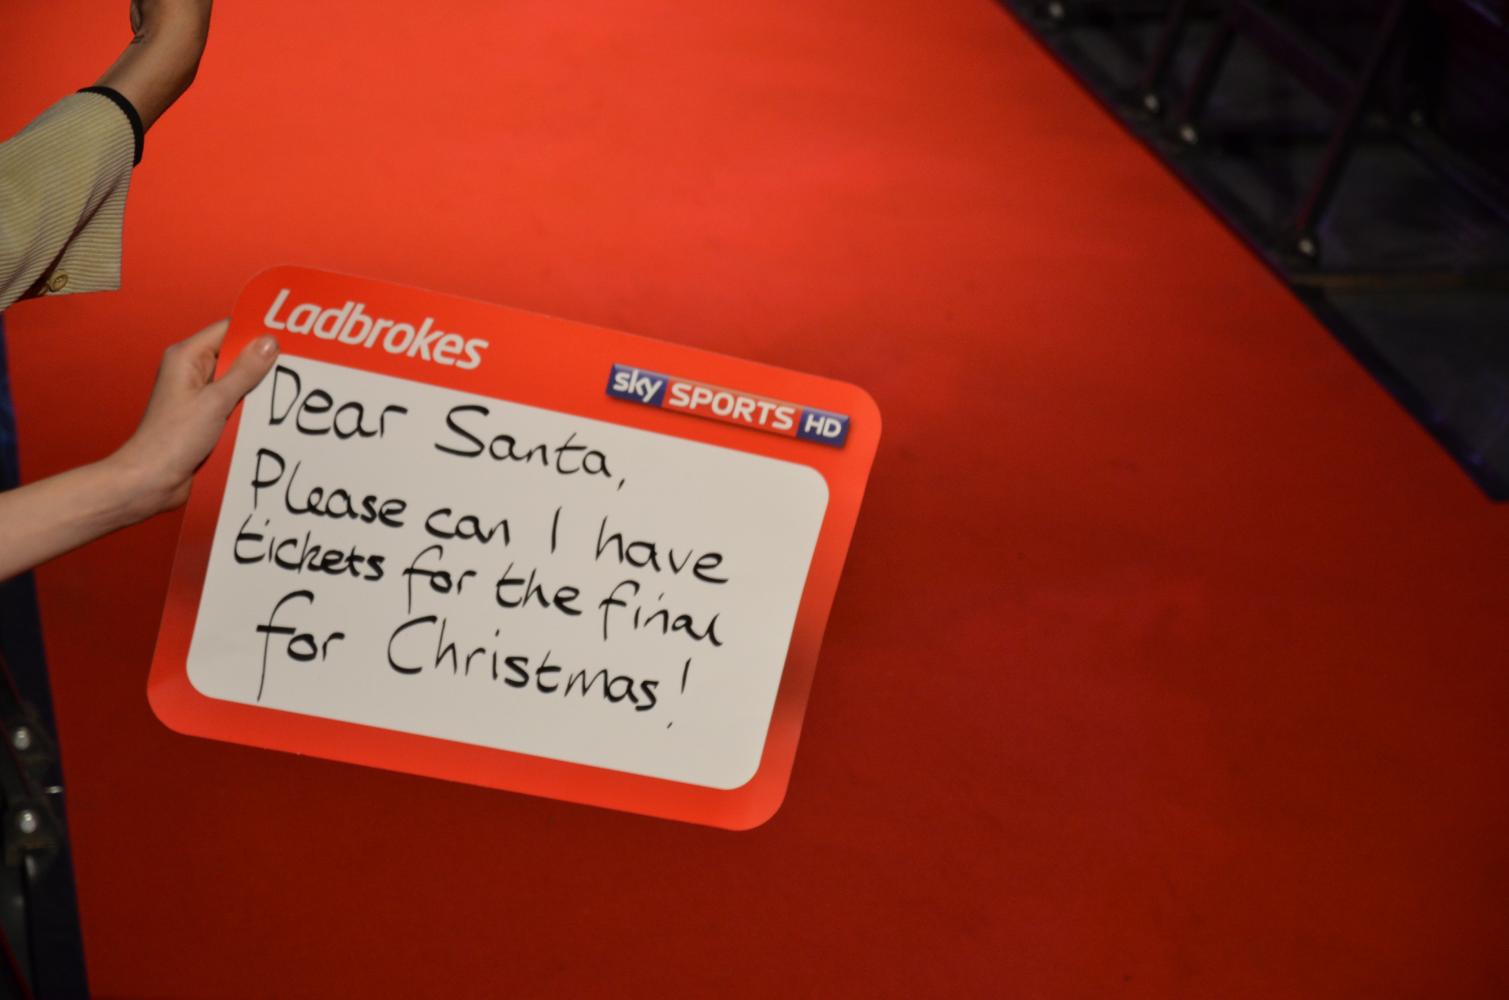 Ladbrokes
sky SPORTS HD
Dear Santa,
Please can I have
tickets for the final
for Christmas!